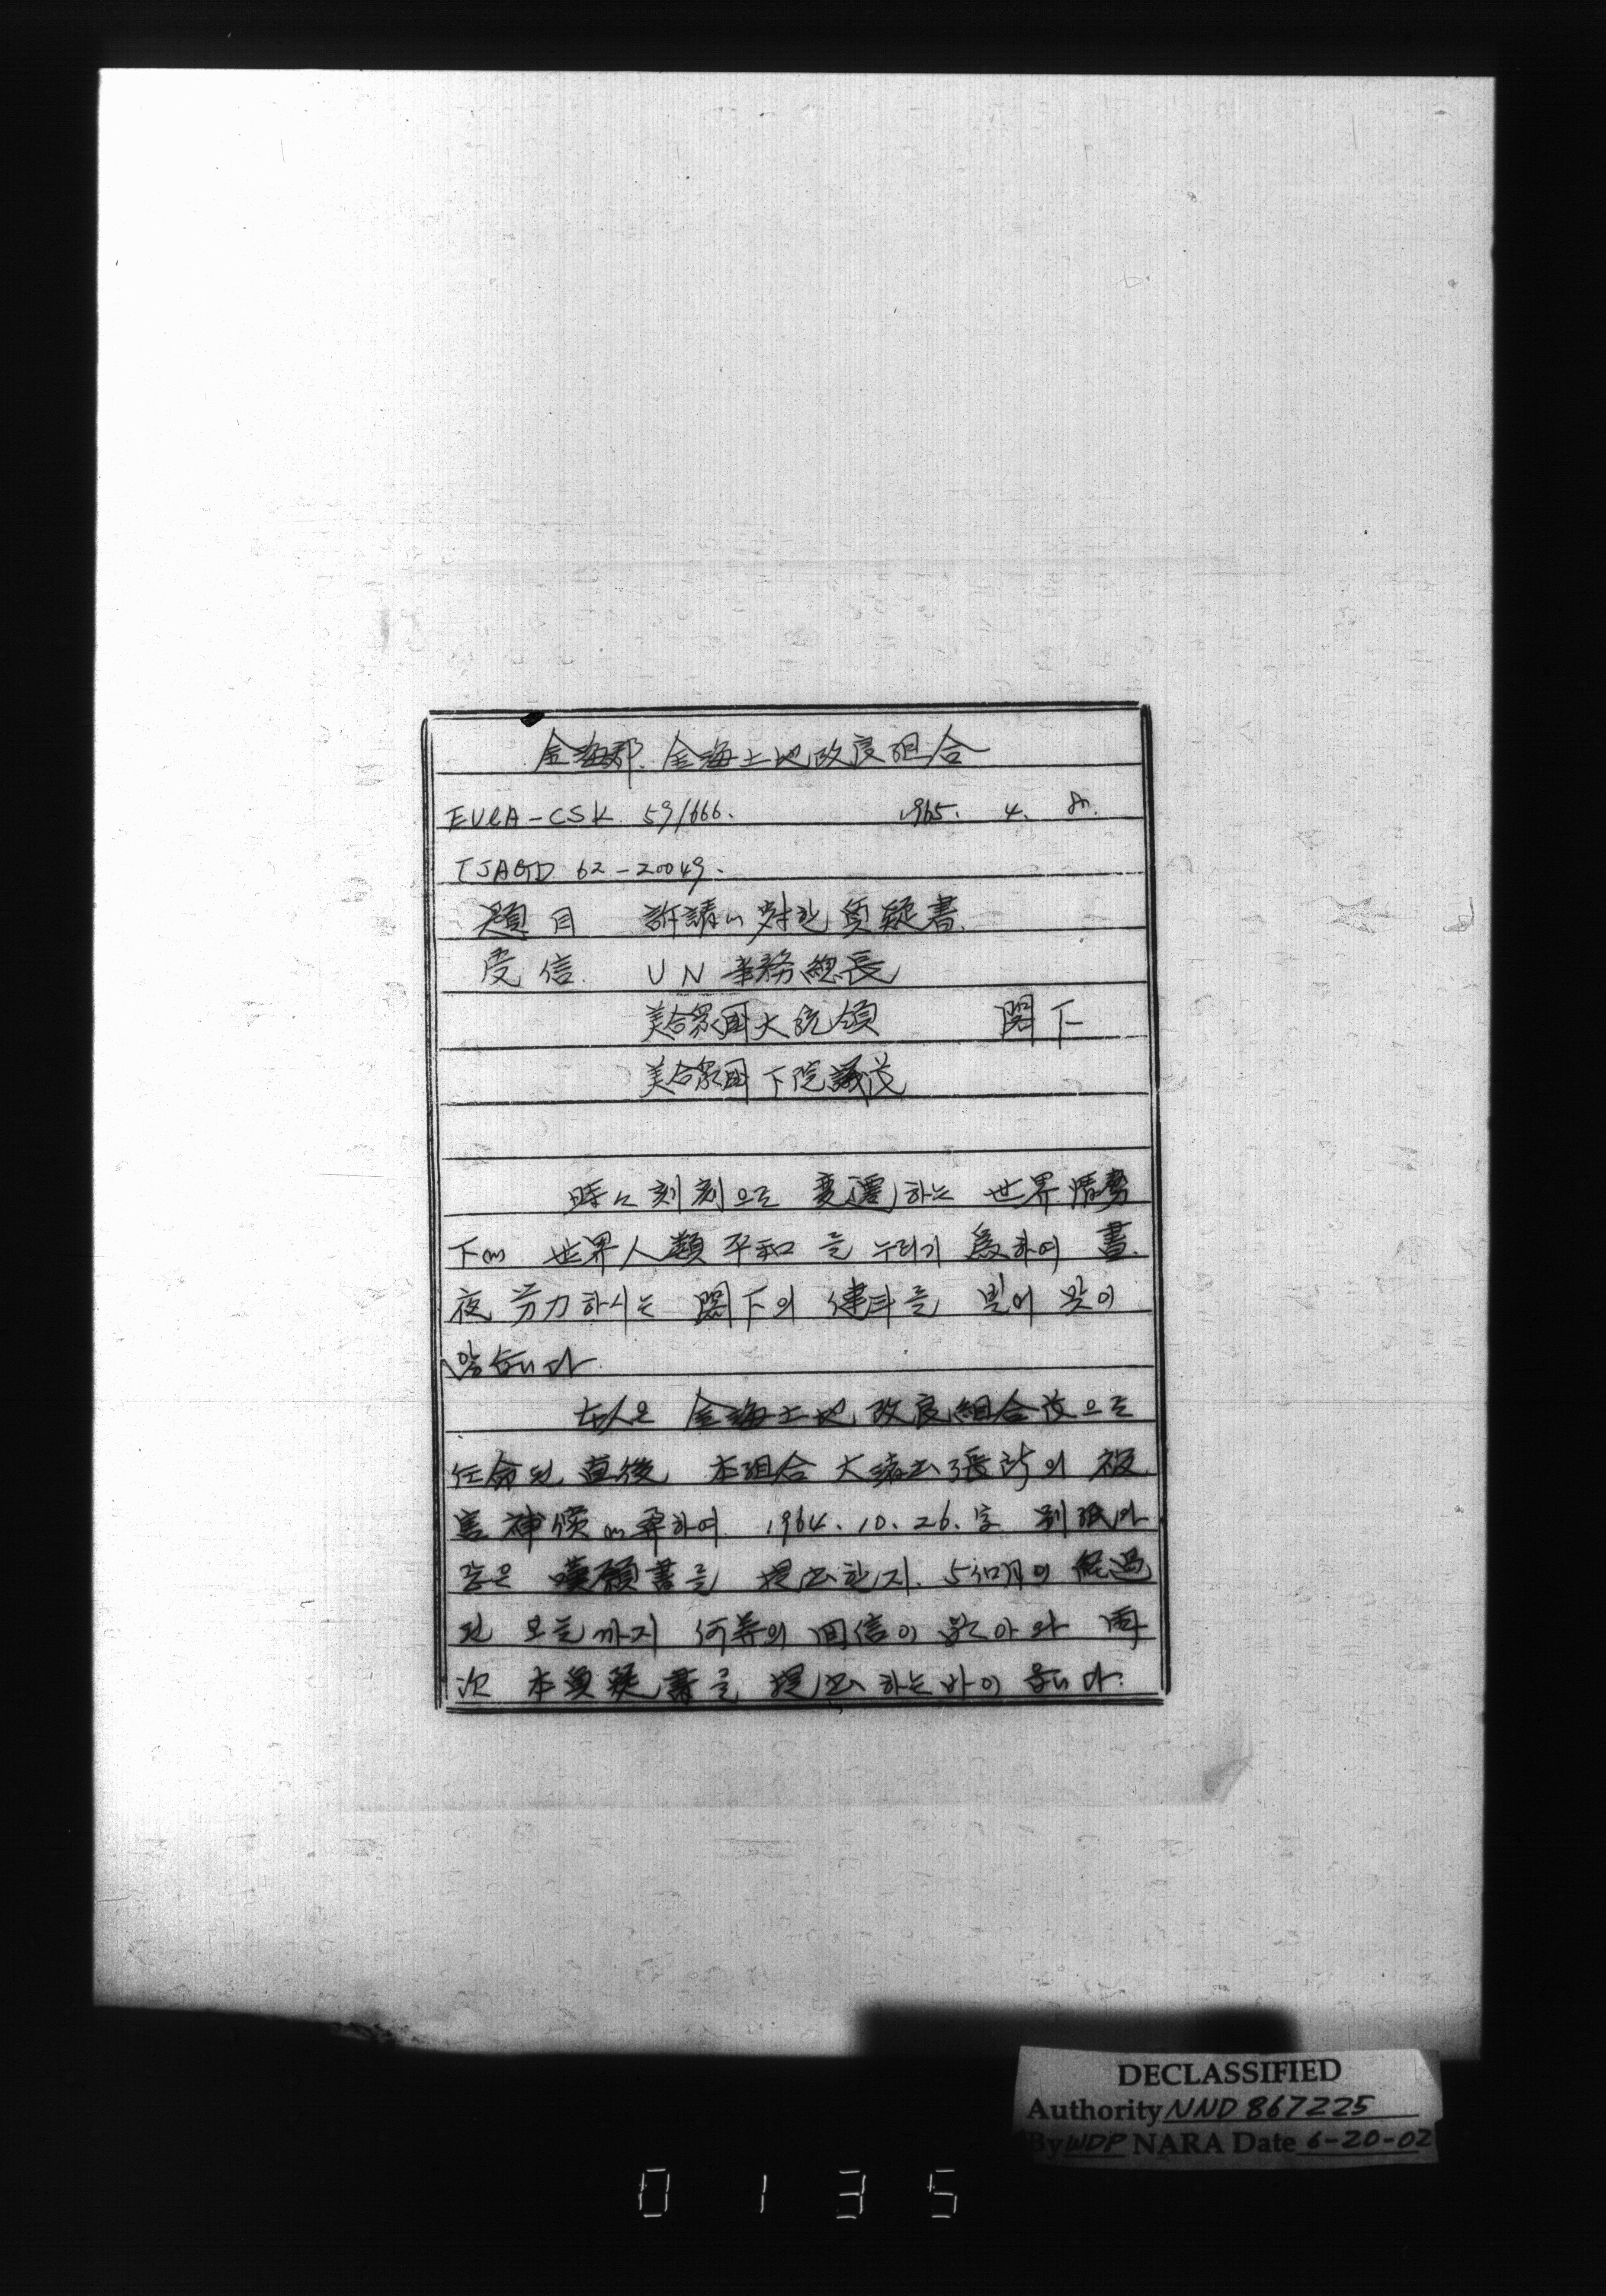 金海郡 金海土地改良組合
EUCA-CSK 59/666. 1965. 4.
TJAGD 62-20049.
題目 訴請에 対한 質疑書.
受信. UN 事務總長
美合衆国大統領 閣下
美合衆国下院議長
時々刻刻으로 変遷하는 世界情勢
下에 世界人類平和를 누리기 爲하여 晝
夜 労力하시는 閣下의 健斗를 빌어 맞이
않습니다.
本人은 金海土地改良組合長으로
任命된 直後 本組合 大渚出張所의 被
害補償에 関하여 1964. 10. 26. 字 別紙와
같은 嘆願書를 提出한지 5個月이 経過
된 오늘까지 何等의 回信이 없아와 再
次 本質疑書를 提出하는바이옵니다.
DECLASSIFIED
Authority NND 867225
By WDP NARA Date 6-20-02
0 1 3 5